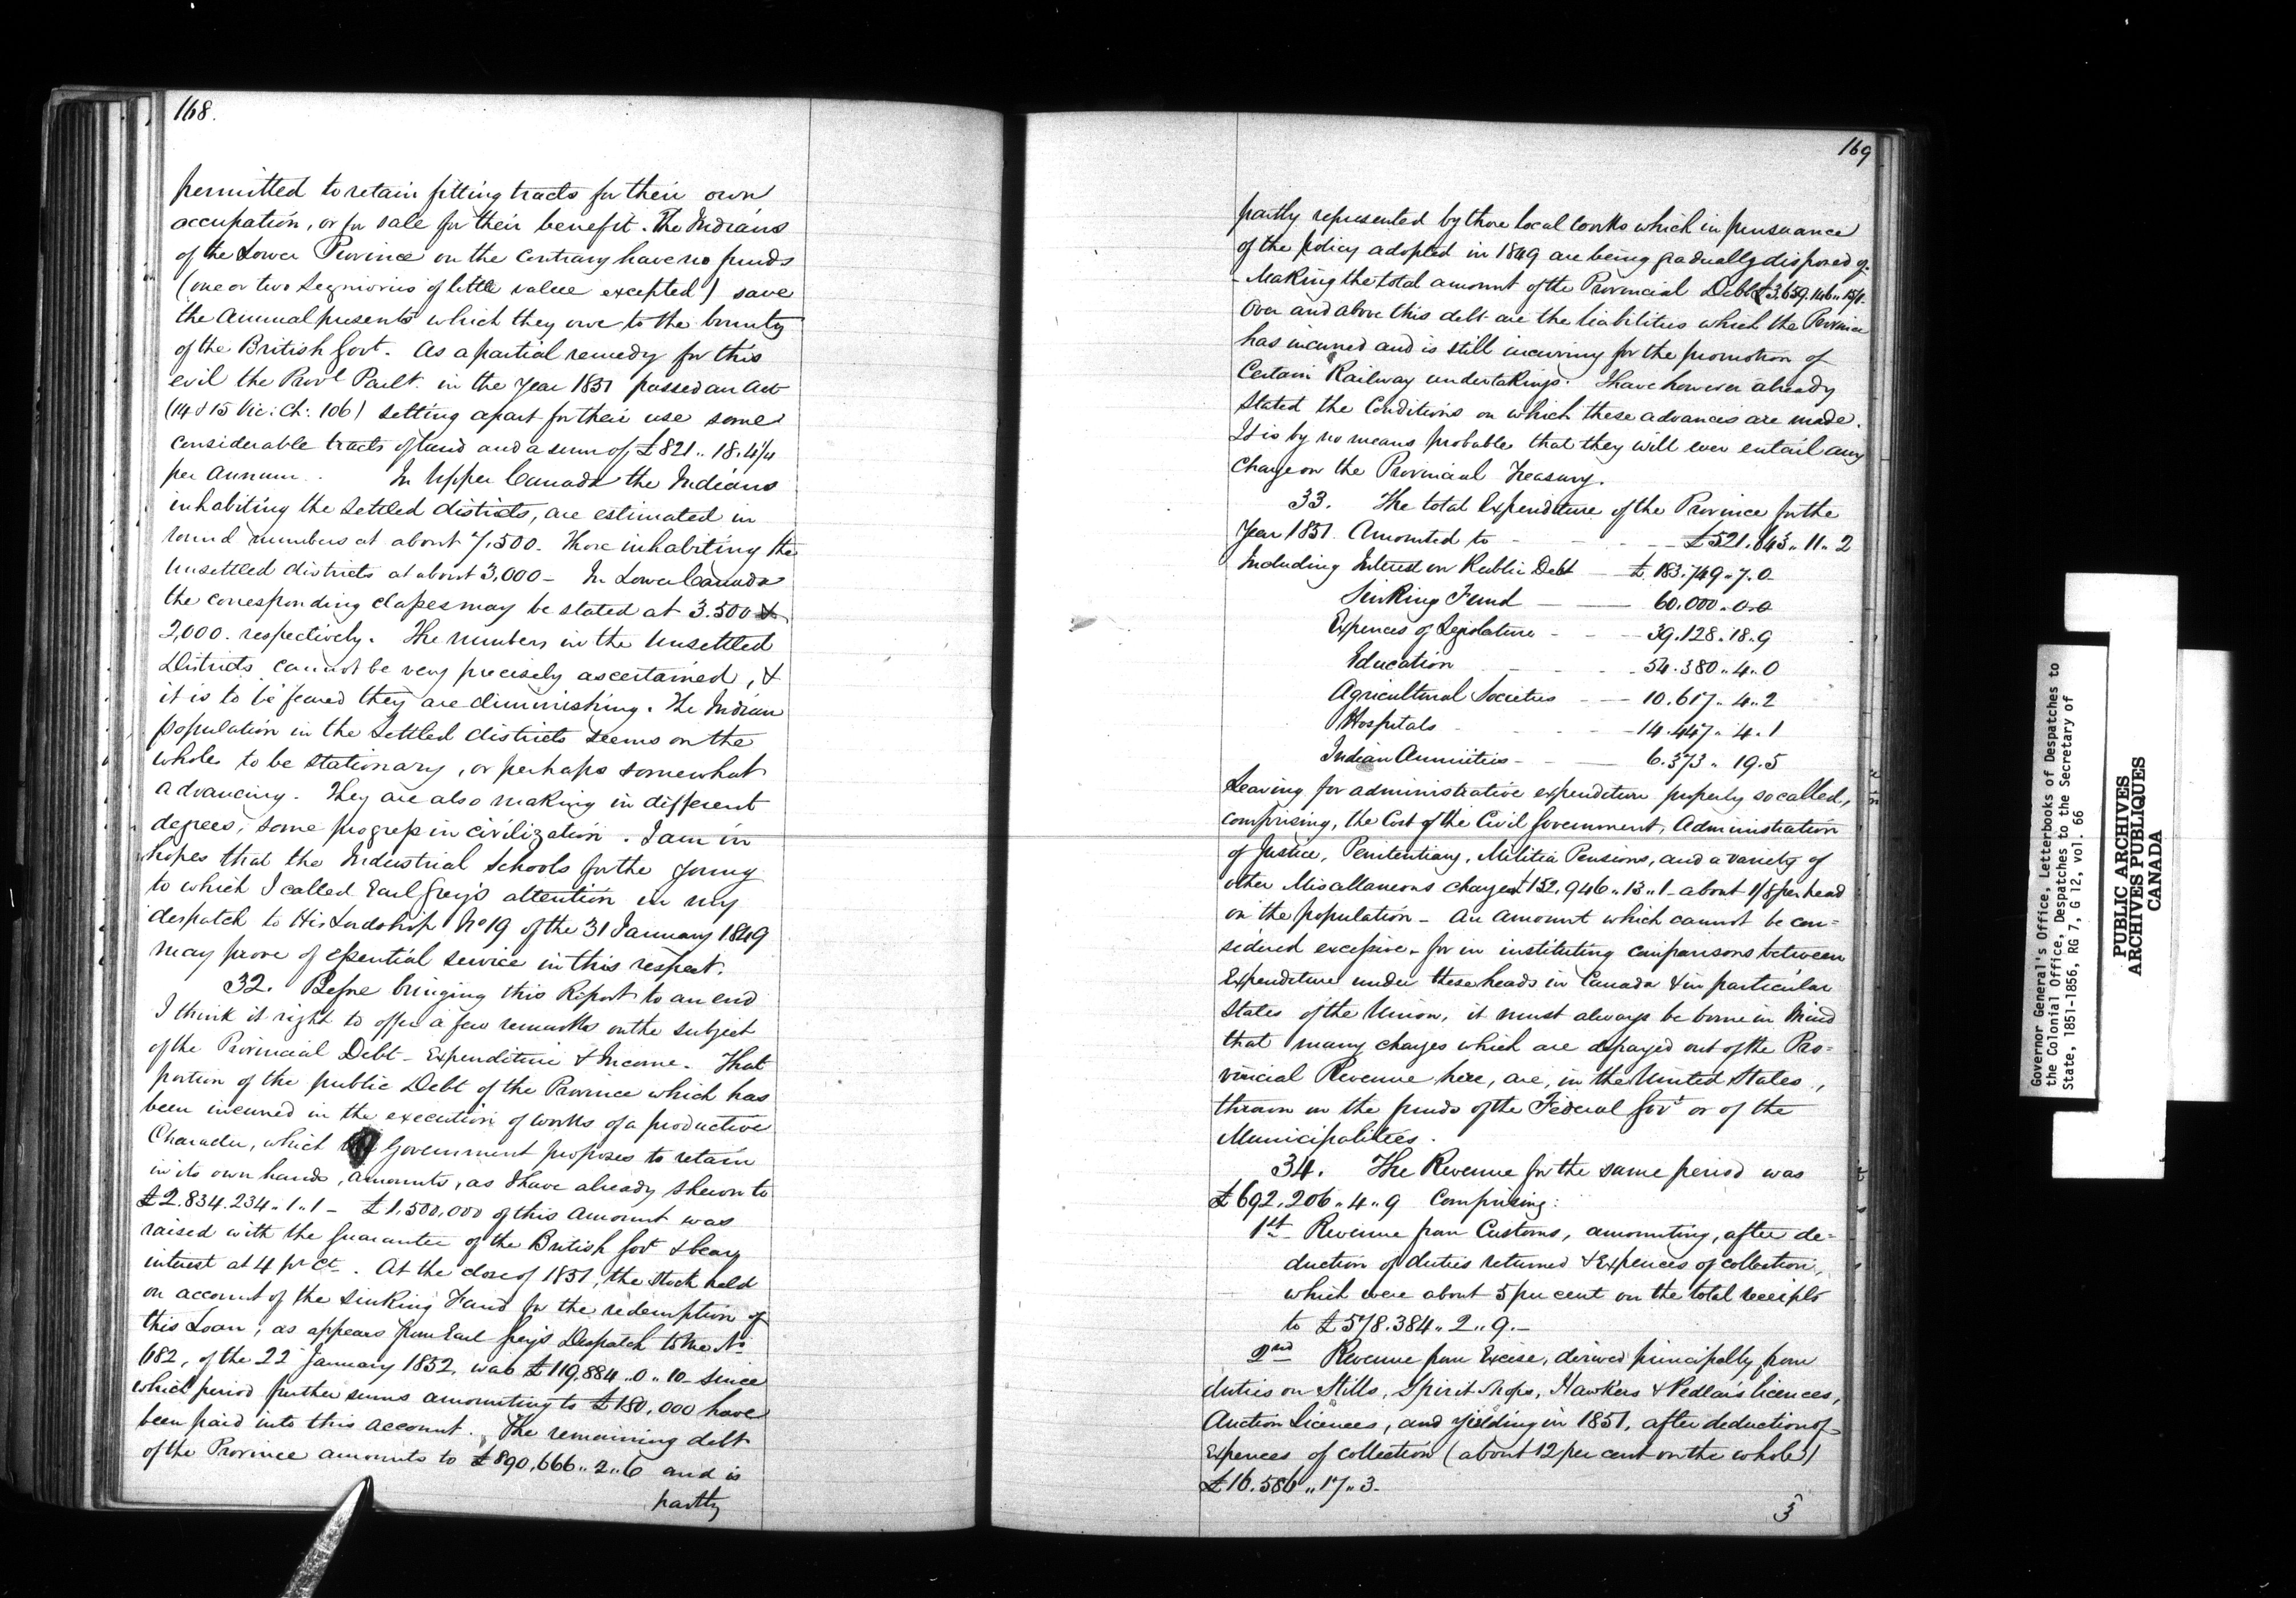 168.
permitted to retain fitting tracts for their own
occupation, or for sale for their benefit. The Indians
of the Lower Province on the Contrary have no funds
(one or two Seigniories of little value excepted) save
the Annual presents which they owe to the bounty
of the British Govt. As a partial remedy for this
evil the Provl Parlt. in the Year 1851 passed an Act
(14 & 15 Vic: Ch: 106) setting apart for their use some
considerable tracts of land and a sum of £821.. 18.4¼
per Annum. In Upper Canada the Indians
inhabiting the settled districts, are estimated in
round numbers at about 7,500. Those inhabiting the
Unsettled districts at about 3,000 - In Lower Canada
the corresponding classes may be stated at 3.500 &
2,000. respectively. The numbers in the Unsettled
Districts cannot be very precisely ascertained, &
it is to be feared they are diminishing. The Indian
population in the settled districts seems on the
whole to be stationary, or perhaps somewhat
advancing. They are also making in different
degrees, some progress in civilization. I am in
hopes that the Industrial Schools for the young
to which I called Earl Grey's attention in my
despatch to His Lordship No 19 of the 31 January 1849
may prove of essential service in this respect.
32. Before bringing this Report to an end
I think it right to offer a few remarks on the subject
of the Provincial Debt - Expenditure & Income. That
portion of the public Debt of the Province which has
been incurred in the execution of works of a productive
Character, which Government proposes to retain
in its own hands, amounts, as I have already shewn to
£2.834.234.. 1.. 1 - £1,500,000 of this Amount was
raised with the Guarantee of the British Govt & bears
interest at 4 pr Ct. At the close of 1851, the Stock held
on account of the Sinking Fund for the redemption of
this Loan, as appears from Earl Grey's Despatch to me No
682, of the 22 January 1852, was £119,884..0..10 - since
which period further sums amounting to £180,000 have
been paid into this account. The remaining debt
of the Province amounts to £890,666..2..6 and is
partly
169
partly represented by those local works which in pursuance
of the policy adopted in 1849 are being gradually disposed of
- Making the total amount of the Provincial Debt £3.659.146..15/1.
Over and above this debt are the liabilities which the Province
has incurred and is still incurring for the promotion of
Certain Railway undertakings. I have however already
stated the Conditions on which these advances are made.
It is by no means probable that they will ever entail any
Charge on the Provincial Treasury.
33. The total Expenditure of the Province for the
Year 1851 Amounted to - £521.643.. 11.. 2
Including Interest on Public Debt - £183.749..7.0
Sinking Fund - 60.000.0.0
Expences of Legislature - 39.128.18.9
Education - 54.380..4..0
Agricultural Societies - 10.617..4..2
Hospitals - 14.447..4.1
Indian Annuities - 6.373.. 19.5
Leaving for administrative expenditure properly so called,
comprising, the Cost of the Civil Government, Administration
of Justice, Penitentiary, Militia Pensions, and a variety of
other Miscellaneous charges £152,946..13..1 - about 1/8 per head
on the population - An Amount which cannot be con=
sidered excessive - for in instituting comparisons between
Expenditure under these heads in Canada & in particular
States of the Union, it must always be borne in Mind
that many charges which are defrayed out of the Pro=
vincial Revenue here, are, in the United States,
thrown on the funds of the Federal Govt or of the
Municipalities.
34. The Revenue for the same period was
£692,206..4..9 Comprising:
1st Revenue from Customs, amounting, after de=
duction of duties returned & Expences of collection,
which were about 5 per cent on the total receipts
to £578.384..2..9.-
2nd Revenue from Excise, derived principally from
duties on Stills, Spirit shops, Hawkers & Pedlars licences,
Auction Licences, and yielding in 1851, after deduction of
Expences of collection (about 12 per cent on the whole)
£16.586..17..3.
3
Governor General's Office, Letterbooks of Despatches to
the Colonial Office, Despatches to the Secretary of
State, 1851-1856, RG 7, G 12, vol. 66
PUBLIC ARCHIVES
ARCHIVES PUBLIQUES
CANADA